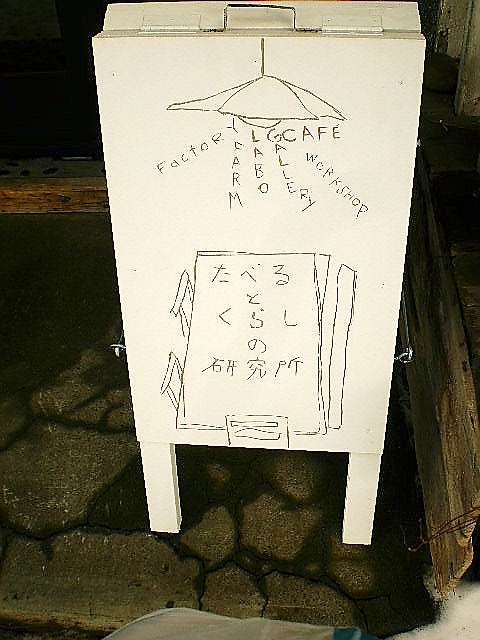 Factory
FARM
LABO
GALLERY
CAFÉ
WORKSHOP
たべる
と
くらし
の
研究所